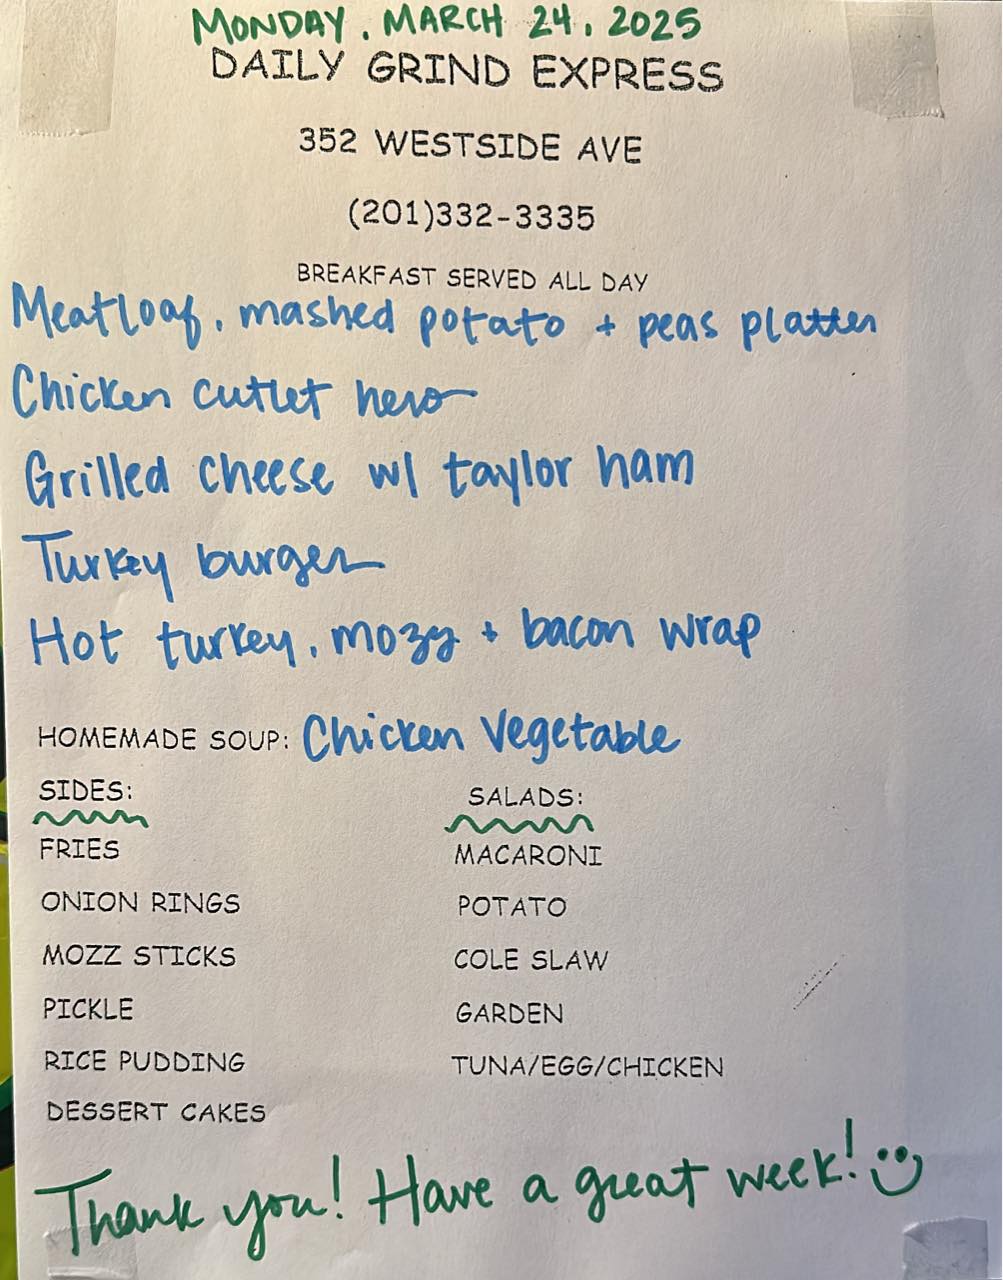 MONDAY, MARCH 24, 2025
DAILY GRIND EXPRESS
352 WESTSIDE AVE
(201)332-3335
BREAKFAST SERVED ALL DAY
Meatloaf, mashed potato + peas platter
Chicken cutlet hero
Grilled cheese w/ taylor ham
Turkey burger
Hot turkey, mozz + bacon wrap
HOMEMADE SOUP: Chicken Vegetable
SIDES:
FRIES
ONION RINGS
MOZZ STICKS
PICKLE
RICE PUDDING
DESSERT CAKES
SALADS:
MACARONI
POTATO
COLE SLAW
GARDEN
TUNA/EGG/CHICKEN
Thank you! Have a great week!